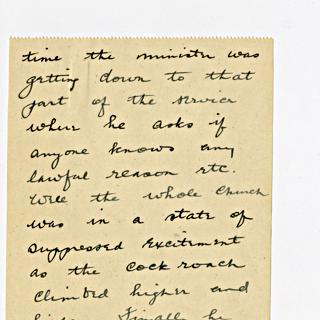 time the minister was
getting down to that
part of the service
where he asks if
anyone knows any
lawful reason etc.
Well the whole church
was in a state of
suppressed excitement
as the cock roach
climbed higher and
Finally he